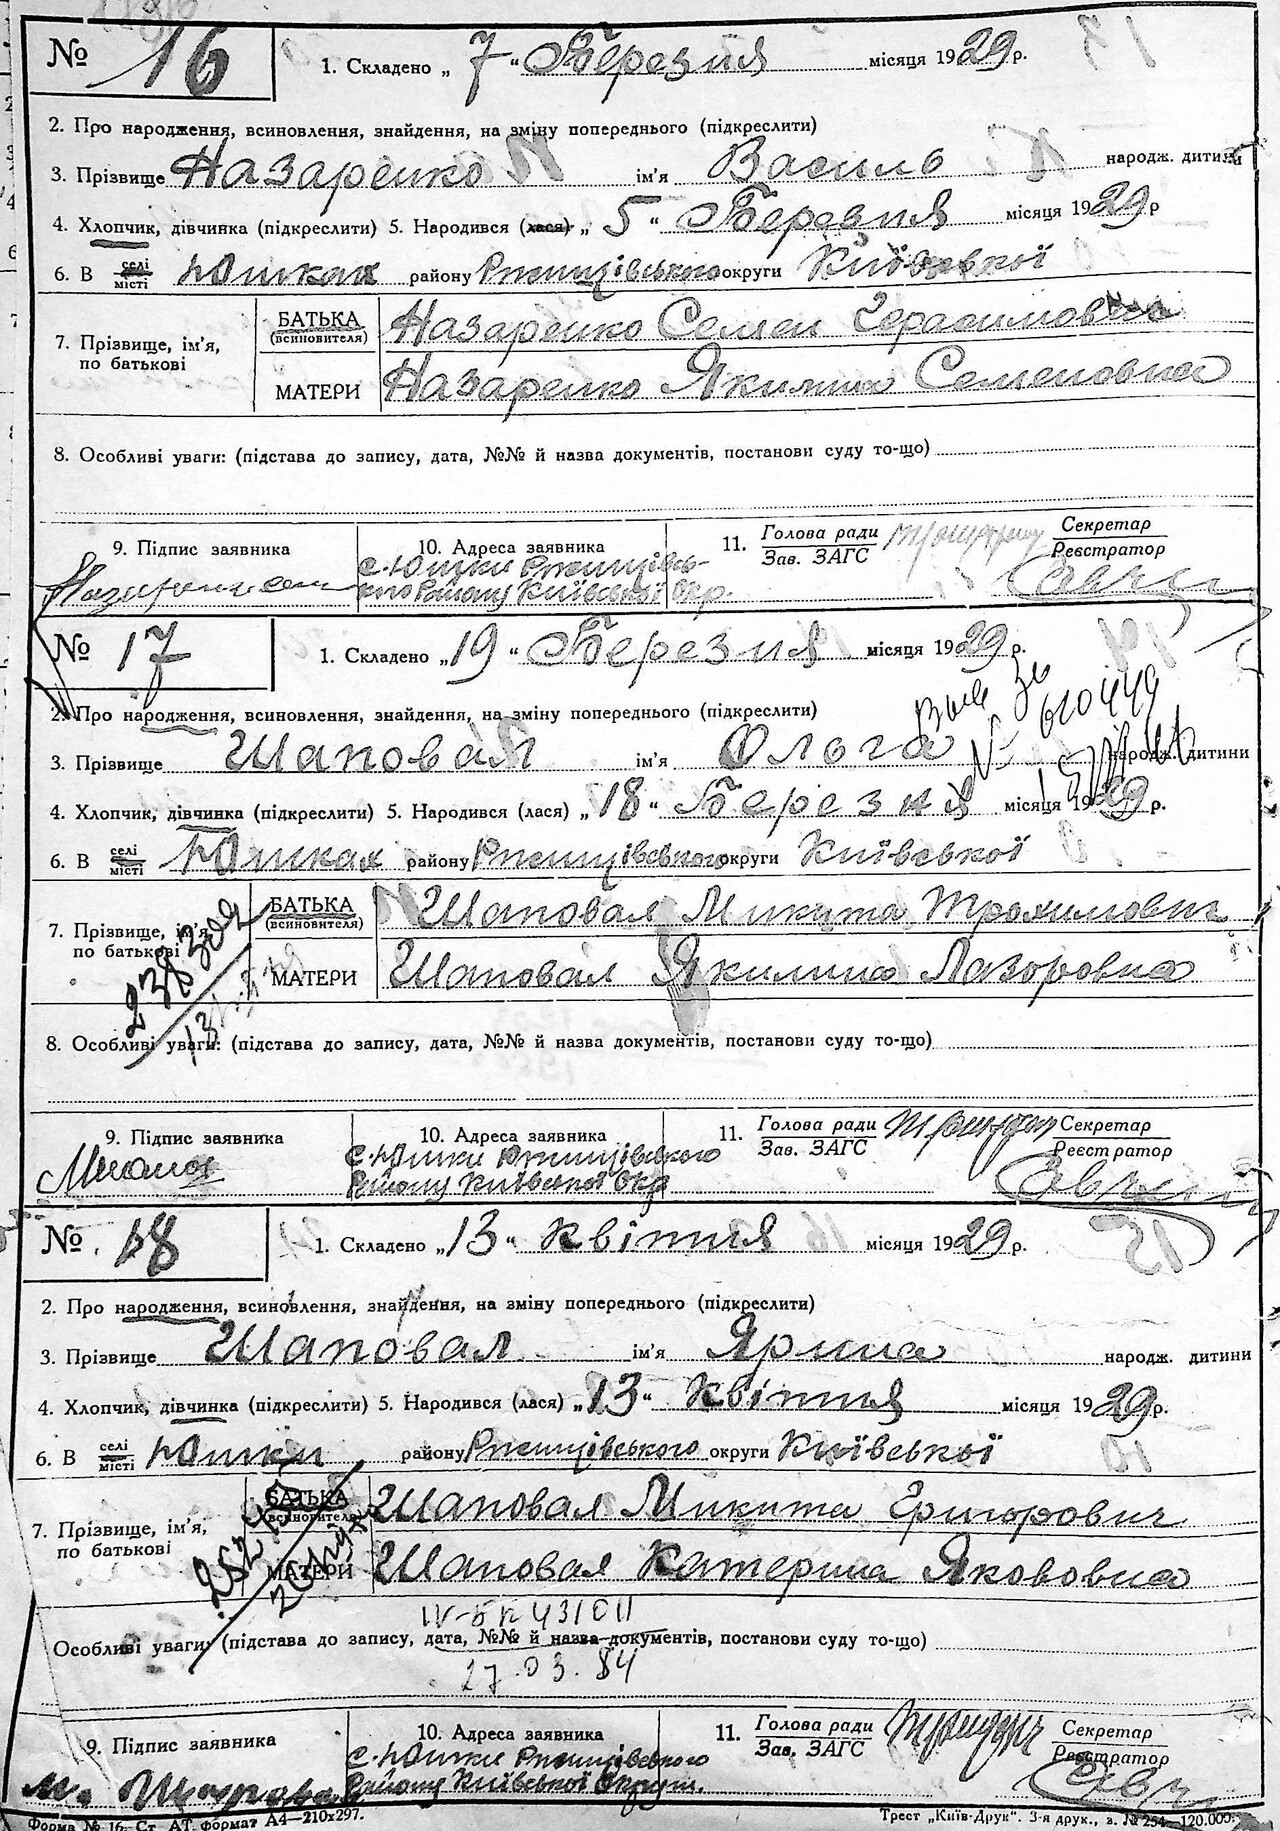 № 16 1. Складено „ 7 “ Березня місяця 1929 р.
2. Про народження, всиновлення, знайдення, на зміну попереднього (підкреслити)
3. Прізвище Назаренко ім'я Василь народж. дитини
4. Хлопчик, дівчинка (підкреслити) 5. Народився (лася) „ 5 “ Березня місяця 1929 р
6. В селі місті Юшках району Ржищівського округи Київської
7. Прізвище, ім'я, по батькові БАТЬКА (всиновителя) Назаренко Семен Герасимович
МАТЕРИ Назаренко Якилина Семеновна
8. Особливі уваги: (підстава до запису, дата, №№ й назва документів, постанови суду то-що)
9. Підпис заявника 10. Адреса заявника 11. Голова ради Зав. ЗАГС Секретар Реєстратор
с. Юшки Ржищівсь-
кого Району Київської Окр.
№ 17 1. Складено „ 19 “ Березня місяця 1929 р.
2. Про народження, всиновлення, знайдення, на зміну попереднього (підкреслити)
3. Прізвище Шаповал ім'я Ольга народж. дитини
4. Хлопчик, дівчинка (підкреслити) 5. Народився (лася) „ 18 “ Березня місяця 1929 р.
6. В селі місті Юшках району Ржищівського округи Київської
7. Прізвище, ім'я, по батькові БАТЬКА (всиновителя) Шаповал Микита Трохимович
МАТЕРИ Шаповал Якилина Лазоровна
8. Особливі уваги: (підстава до запису, дата, №№ й назва документів, постанови суду то-що)
9. Підпис заявника 10. Адреса заявника 11. Голова ради Зав. ЗАГС Секретар Реєстратор
с. Юшки Ржищівського
Району Київської Окр
№ 18 1. Складено „ 13 “ Квітня місяця 1929 р.
2. Про народження, всиновлення, знайдення, на зміну попереднього (підкреслити)
3. Прізвище Шаповал ім'я Ярина народж. дитини
4. Хлопчик, дівчинка (підкреслити) 5. Народився (лася) „ 13 “ Квітня місяця 1929 р.
6. В селі місті Юшки району Ржищівського округи Київської
7. Прізвище, ім'я, по батькові БАТЬКА (всиновителя) Шаповал Микита Григорович
МАТЕРИ Шаповал Катерина Якововна
IV-БК 431011
Особливі уваги: (підстава до запису, дата, №№ й назва документів, постанови суду то-що)
27.03.84
9. Підпис заявника 10. Адреса заявника 11. Голова ради Зав. ЗАГС Секретар Реєстратор
с. Юшки Ржищівського
Району Київської Округи.
Форма № 16. Ст. АТ. формат А4—210х297. Трест „Київ-Друк“. 3-я друк., з. № 254—120.000.